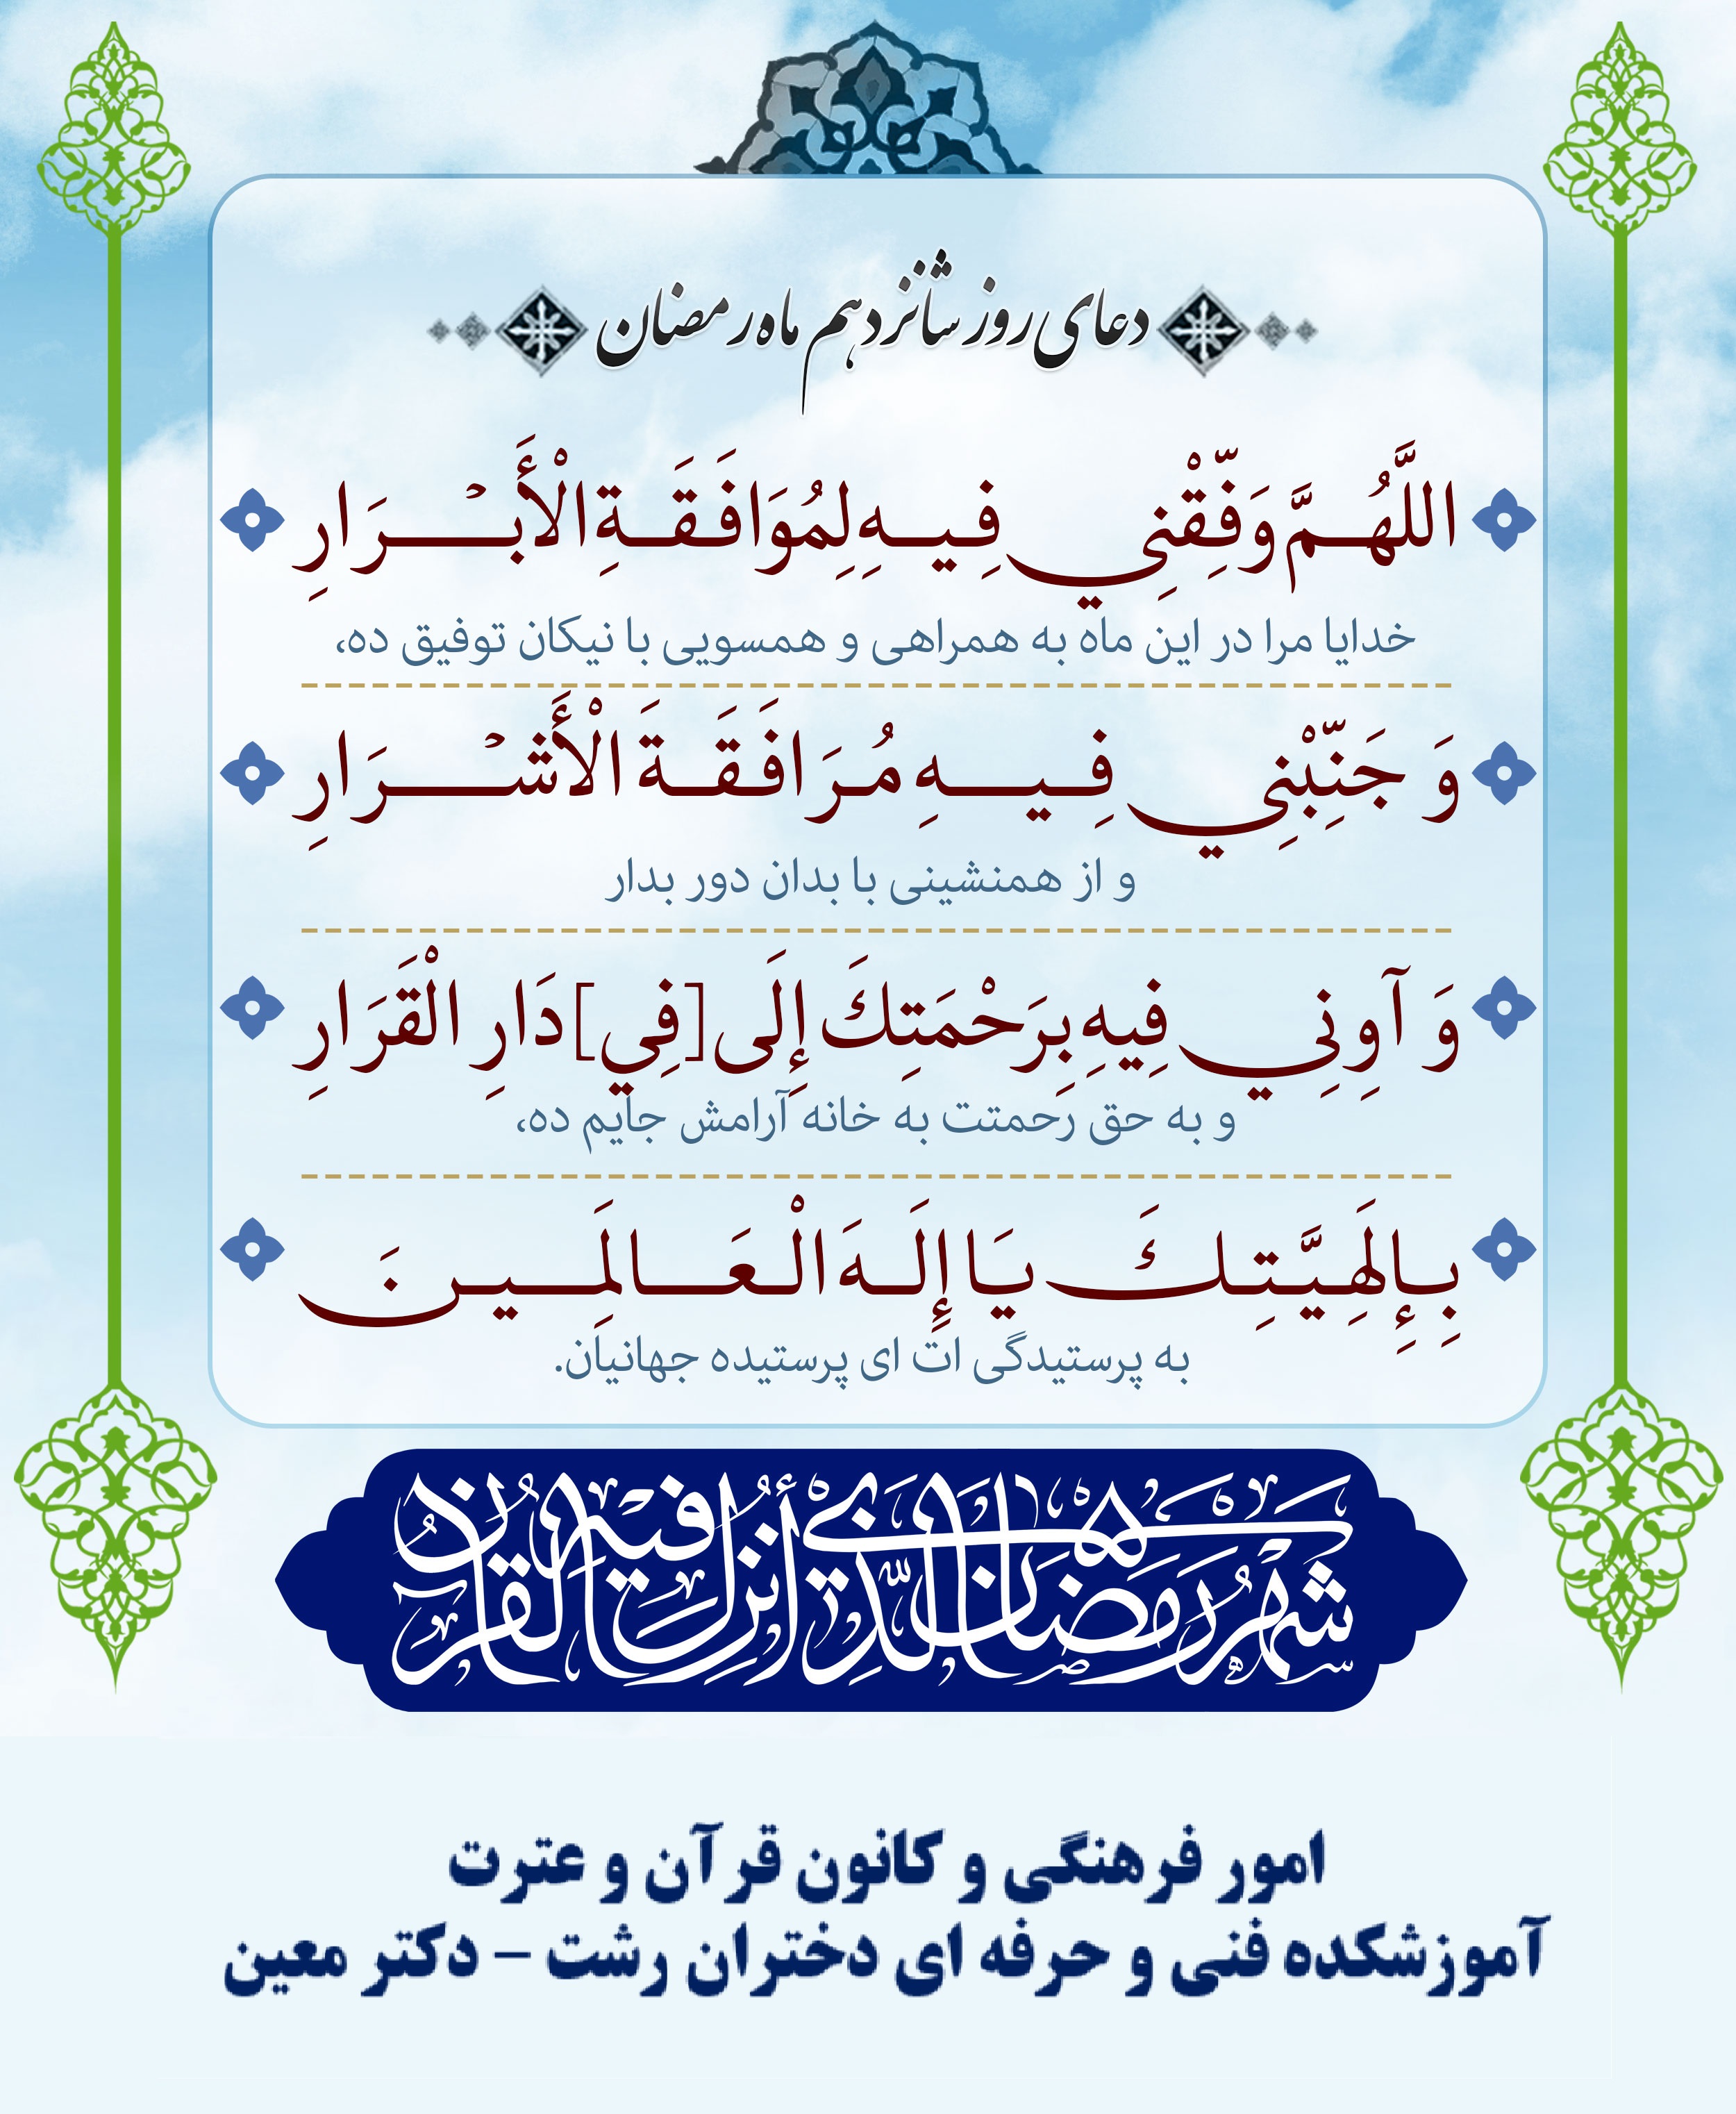 دعای روز شانزدهم ماه رمضان
اللهُمَّ وَفِّقْنِي فِيهِ لِمُوَافَقَةِ الْأَبْرَارِ
خدایا مرا در این ماه به همراهی و همسویی با نیکان توفیق ده،
وَ جَنِّبْنِي فِيهِ مُرَافَقَةَ الْأَشْرَارِ
و از همنشینی با بدان دور بدار
وَ آوِنِي فِيهِ بِرَحْمَتِكَ إِلَى [فِي] دَارِ الْقَرَارِ
و به حق رحمتت به خانه آرامش جایم ده،
بِإِلَهِيَّتِكَ يَا إِلَهَ الْعَالَمِينَ
به پرستیدگی ات ای پرستیده جهانیان.
شهر رمضان الذي أنزل فيه القرآن
امور فرهنگی و کانون قرآن و عترت
آموزشکده فنی و حرفه ای دختران رشت – دکتر معین